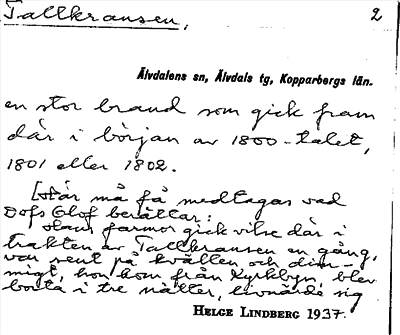 Tallkransen, 2
Älvdalens sn, Älvdals tg, Kopparbergs län.
en stor brand som gick fram
där i början av 1800-talet,
1801 eller 1802.
Här må få medtagas vad
Dofs Olof berättar:
Hans farmor gick vilse där i
trakten av Tallkransen en gång,
var sent på kvällen och dim-
migt, hon kom från Kyrkbyn, blev
borta i tre nätter, livnärde sig
HELGE LINDBERG 1937.